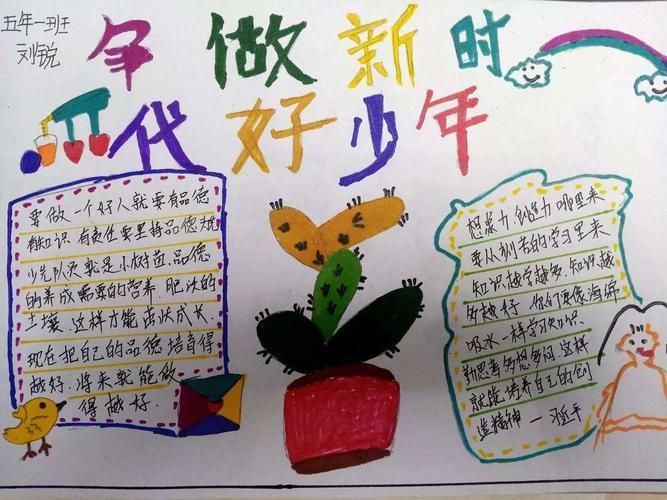 五年一班
刘锐
争做新时
代好少年
要做一个好人就要有品德
有知识有责任要坚持品德
少先队员就是小树苗.品德
的养成需要的营养.肥沃的
土壤.这样才能茁壮成长.
现在把自己的品德培育得
越好.将来就能做
得越好.
想象力,创造力哪里来
要从刻苦的学习里来
知识越学越多.知识越
多越好 你们要像海绵
吸水一样学习知识.
勤思考多想多问 这样
就能培养自己的创
造精神 — 习近平